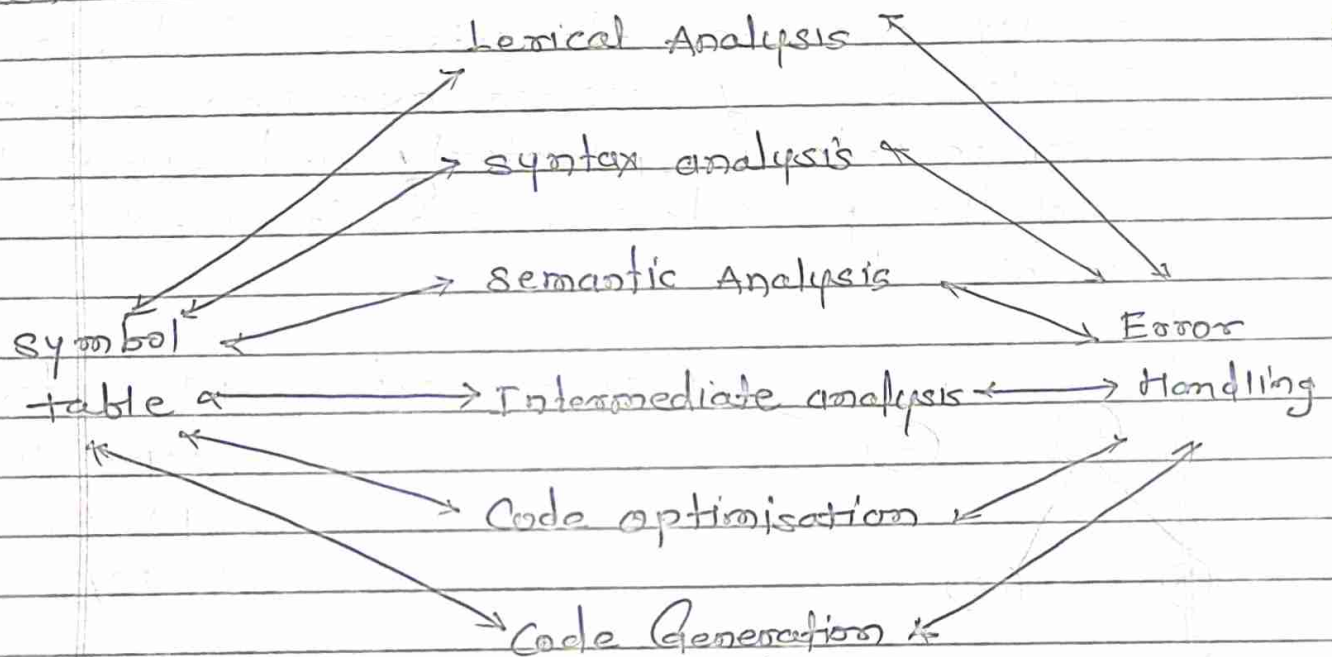 Lexical Analysis
syntax analysis
Semantic Analysis
Symbol
Error
table
Intermediate analysis
Handling
Code optimisation
Code Generation